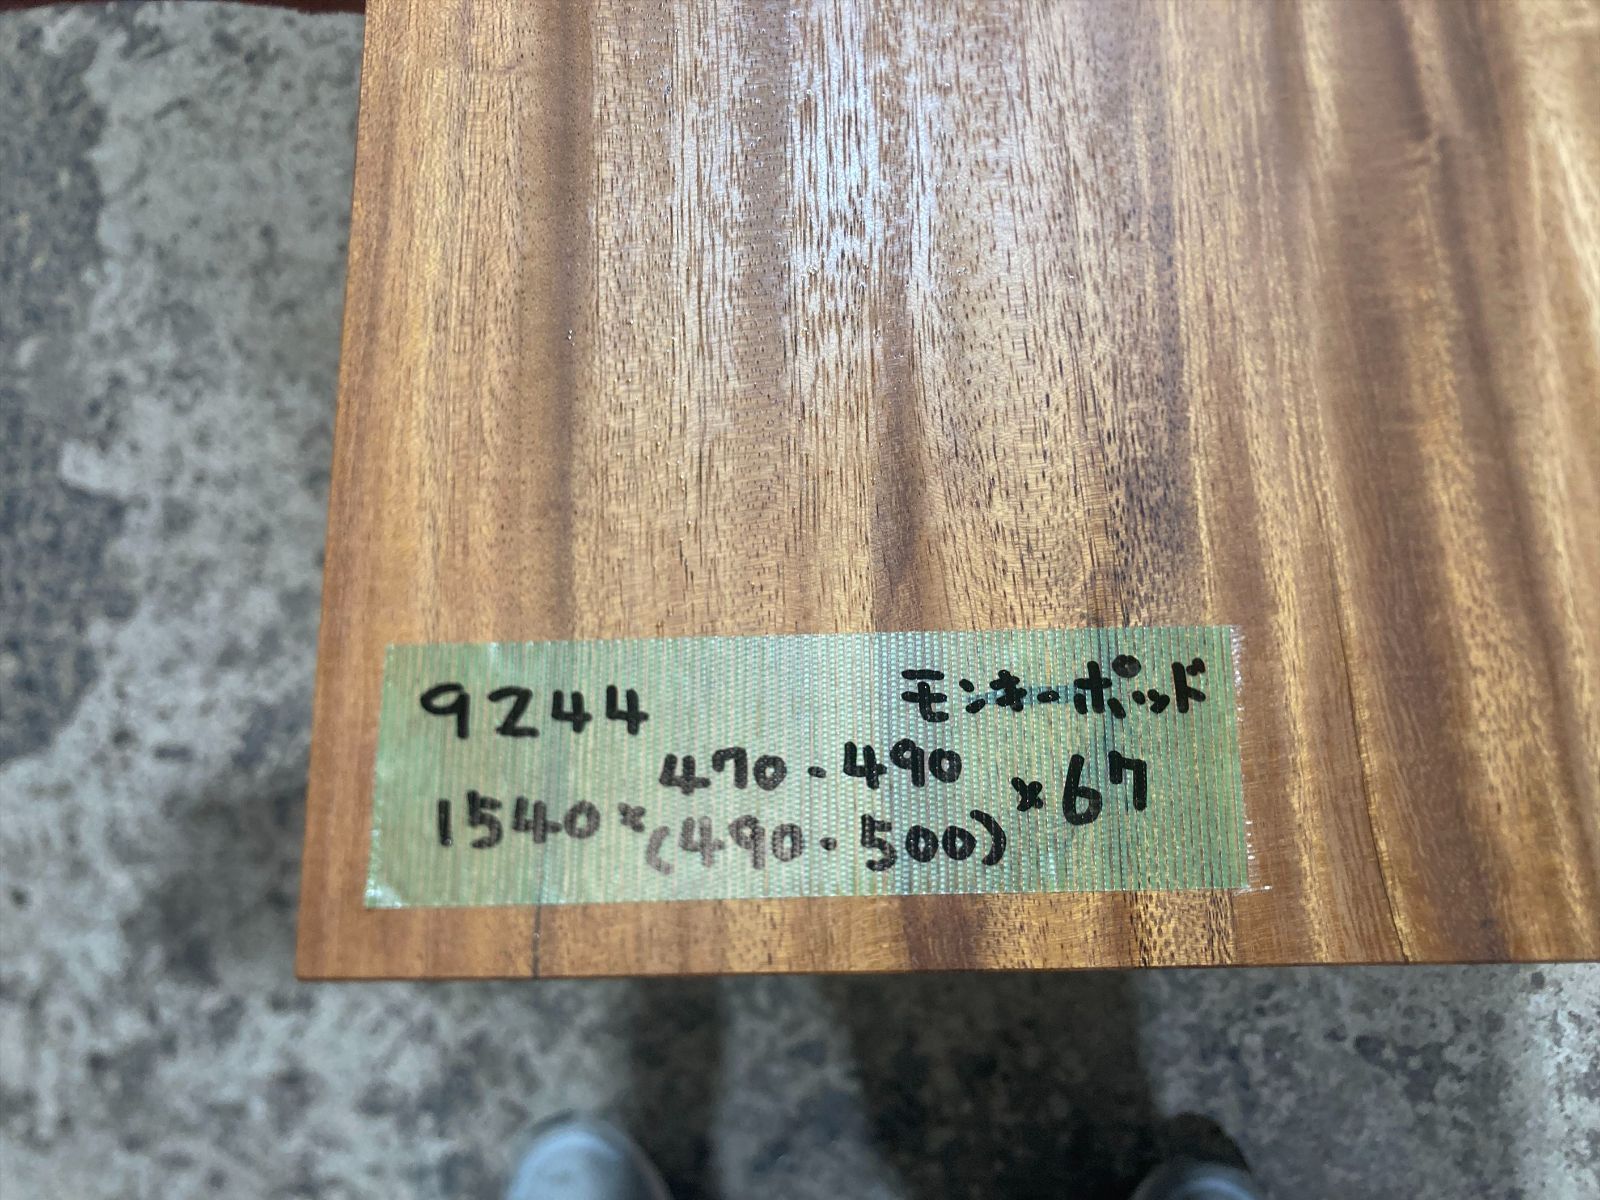 9244 モンキーポッド
470-490
1540×(490・500)×67